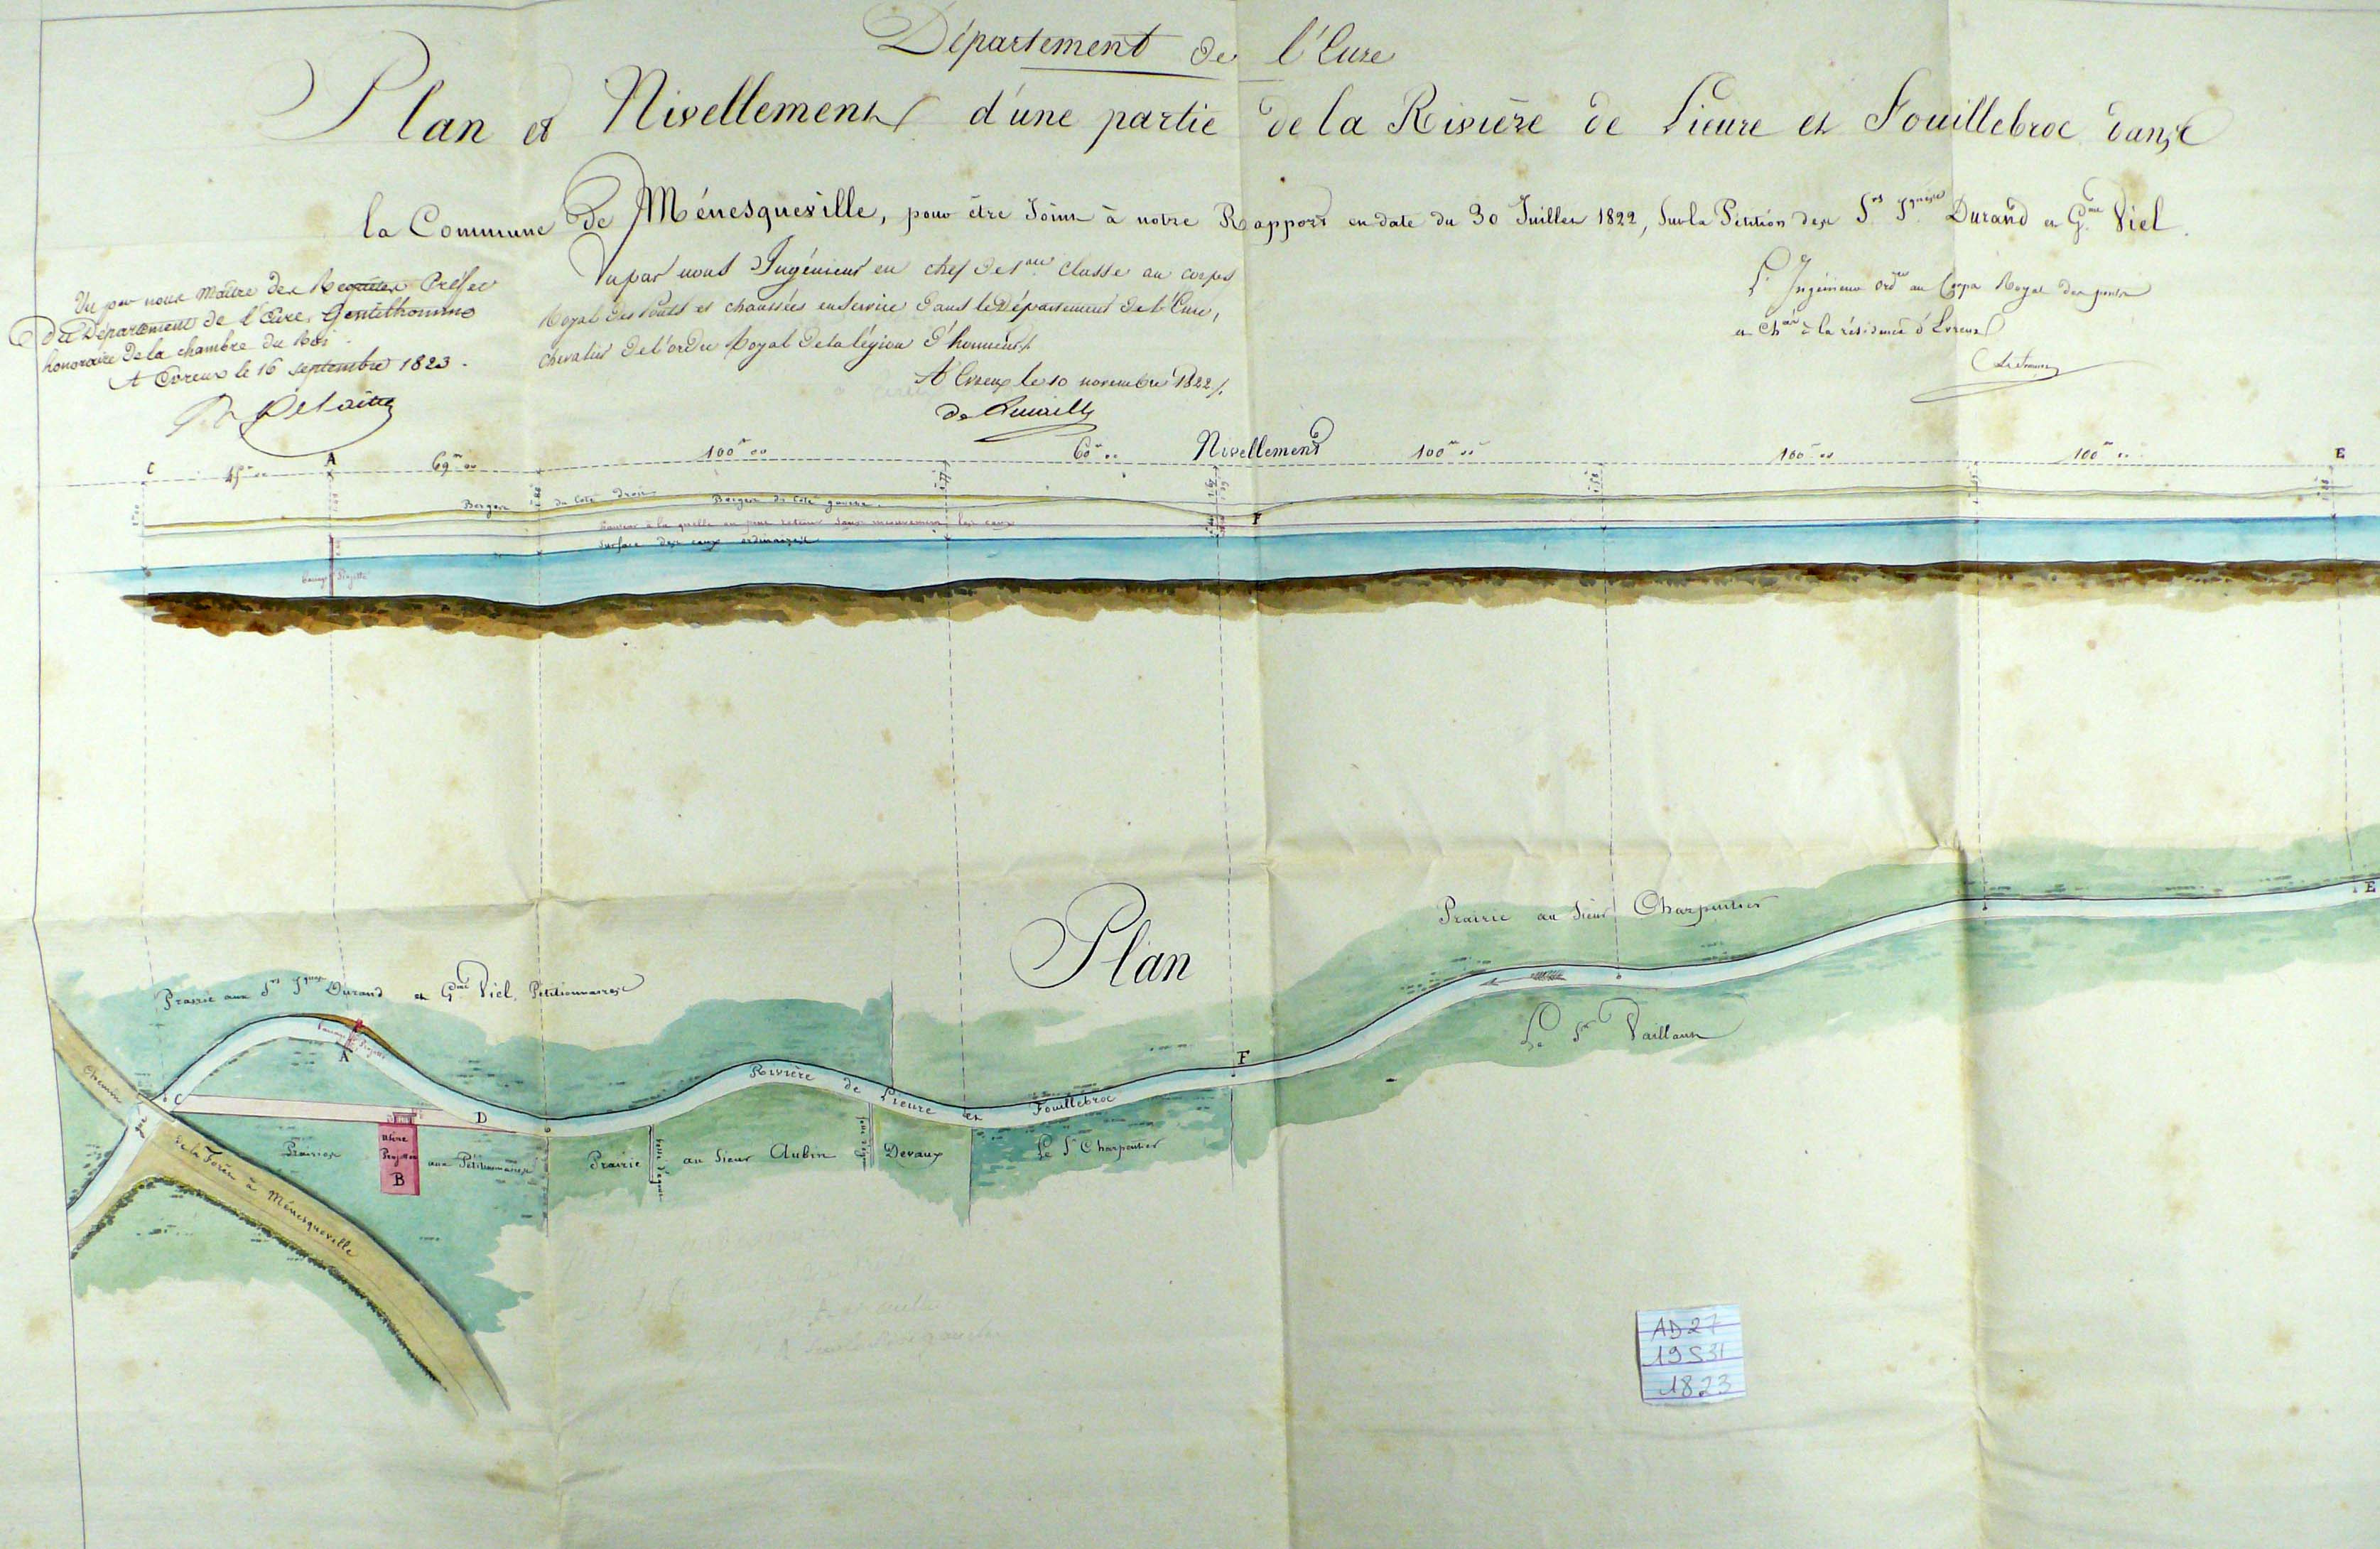 Département de l'Eure
Plan et Nivellement d'une partie de la Rivière de Lieure et Fouillebroc dans
la Commune de Ménesqueville, pour être Joint à notre Rapport en date du 30 Juillet 1822, Sur la Pétition des Srs Jques Durand et Gme Viel.
Vu par nous Maître des Requêtes Préfet
du Département de l'Eure, Gentilhomme
honoraire de la chambre du Roi.
A Evreux le 16 septembre 1823.
Vu par nous Ingénieur en chef de 1ere classe au corps
Royal des Ponts et chaussées en service dans le Département de l'Eure,
chevalier de l'ordre Royal de la légion d'honneur
A Evreux le 10 novembre 1822
L'Ingénieur ordre au Corps Royal des ponts
et Chées à la résidence d'Evreux
Nivellement
C
A
69m 00
100m 00
60m 00
100m 00
100m 00
100m 00
E
Berges du Coté droit
Berges du Coté gauche
hauteur à la quelle on peut retenir sans inconvenient les eaux
Surface des eaux ordinaires
F
barrage Projetté
Plan
Prairie au Sieur Charpentier
E
Prairie aux Srs Jques Durand et Gme Viel, Petitionnaires
Vannage Projetté
A
Le Sr Vaillant
F
C
D
Rivière de Lieure et Fouillebroc
Chemin
gué
de la Forêt à Ménesqueville
Prairies
Usine
Projettée
B
aux Pétitionnaires
Prairie
au Sieur Aubin
Devaux
Le Sr Charpentier
AD 27
19 S 31
1823